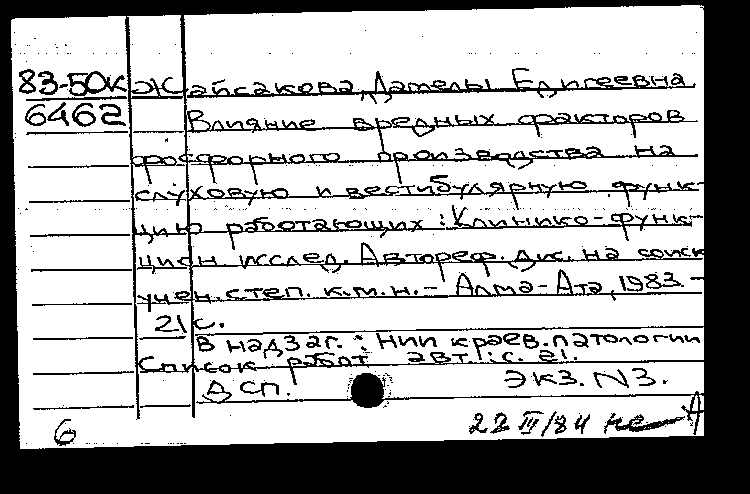 83-50к Жайсакова, Дамелы Едигеевна
6462 Влияние вредных факторов
фосфорного производства на
слуховую и вестибулярную функ-
цию работающих: Клинико-функ-
цион. исслед. Автореф. дис. на соиск
учен. степ. к.м.н. - Алма-Ата, 1983. -
21 с.
В надзаг.: НИИ краев. патологии
Список работ авт.: с. 21.
ДСП. Экз. N3.
6 22 III/84